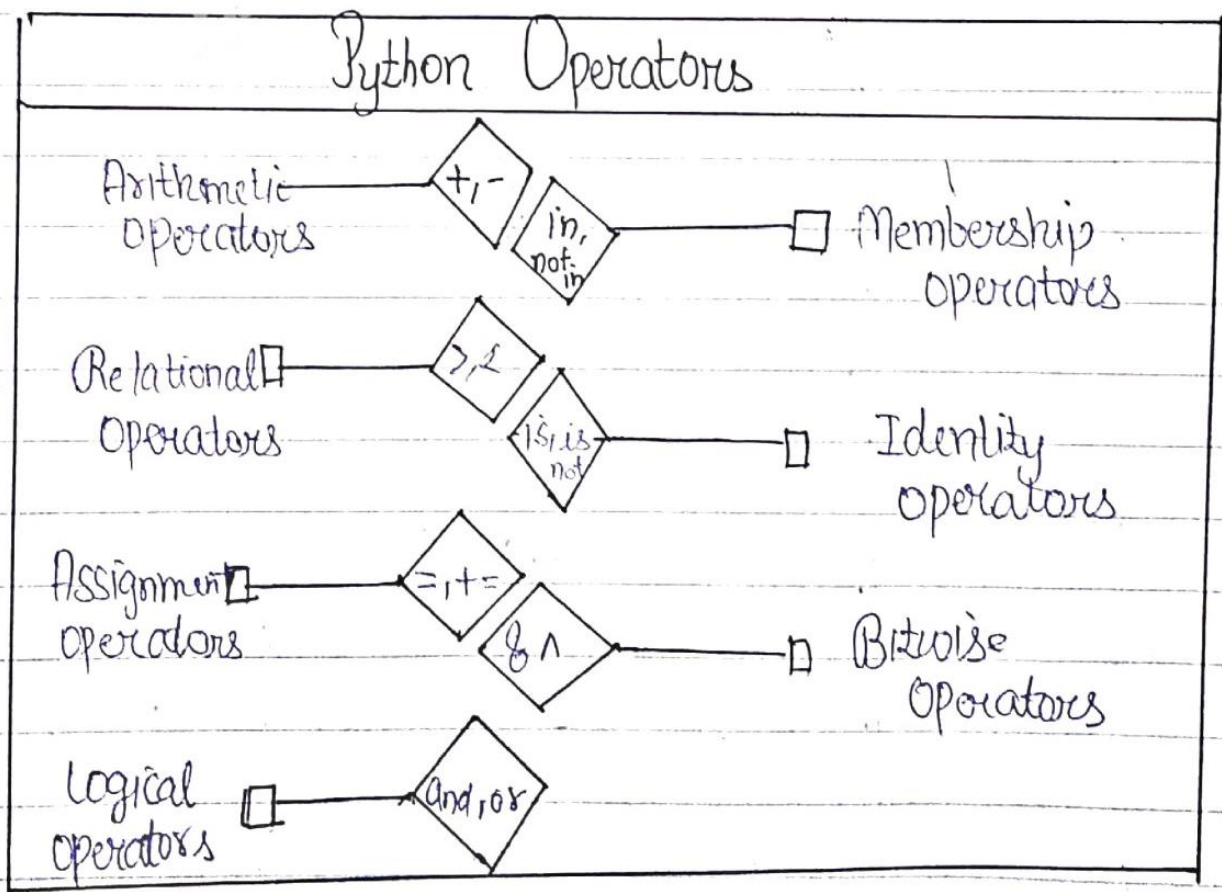 Python Operators
Arithmetic
operators
+, -
in,
not in
Membership
operators
Relational
operators
>, <
is, is
not
Identity
operators
Assignment
operators
=, +=
& ^
Bitwise
operators
Logical
operators
and, or